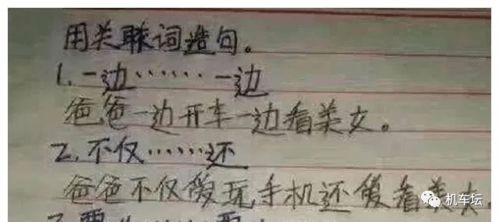 用关联词造句。
1.一边……一边
爸爸一边开车一边看美女。
2.不仅……还
爸爸不仅爱玩手机还爱看美女
机车坛